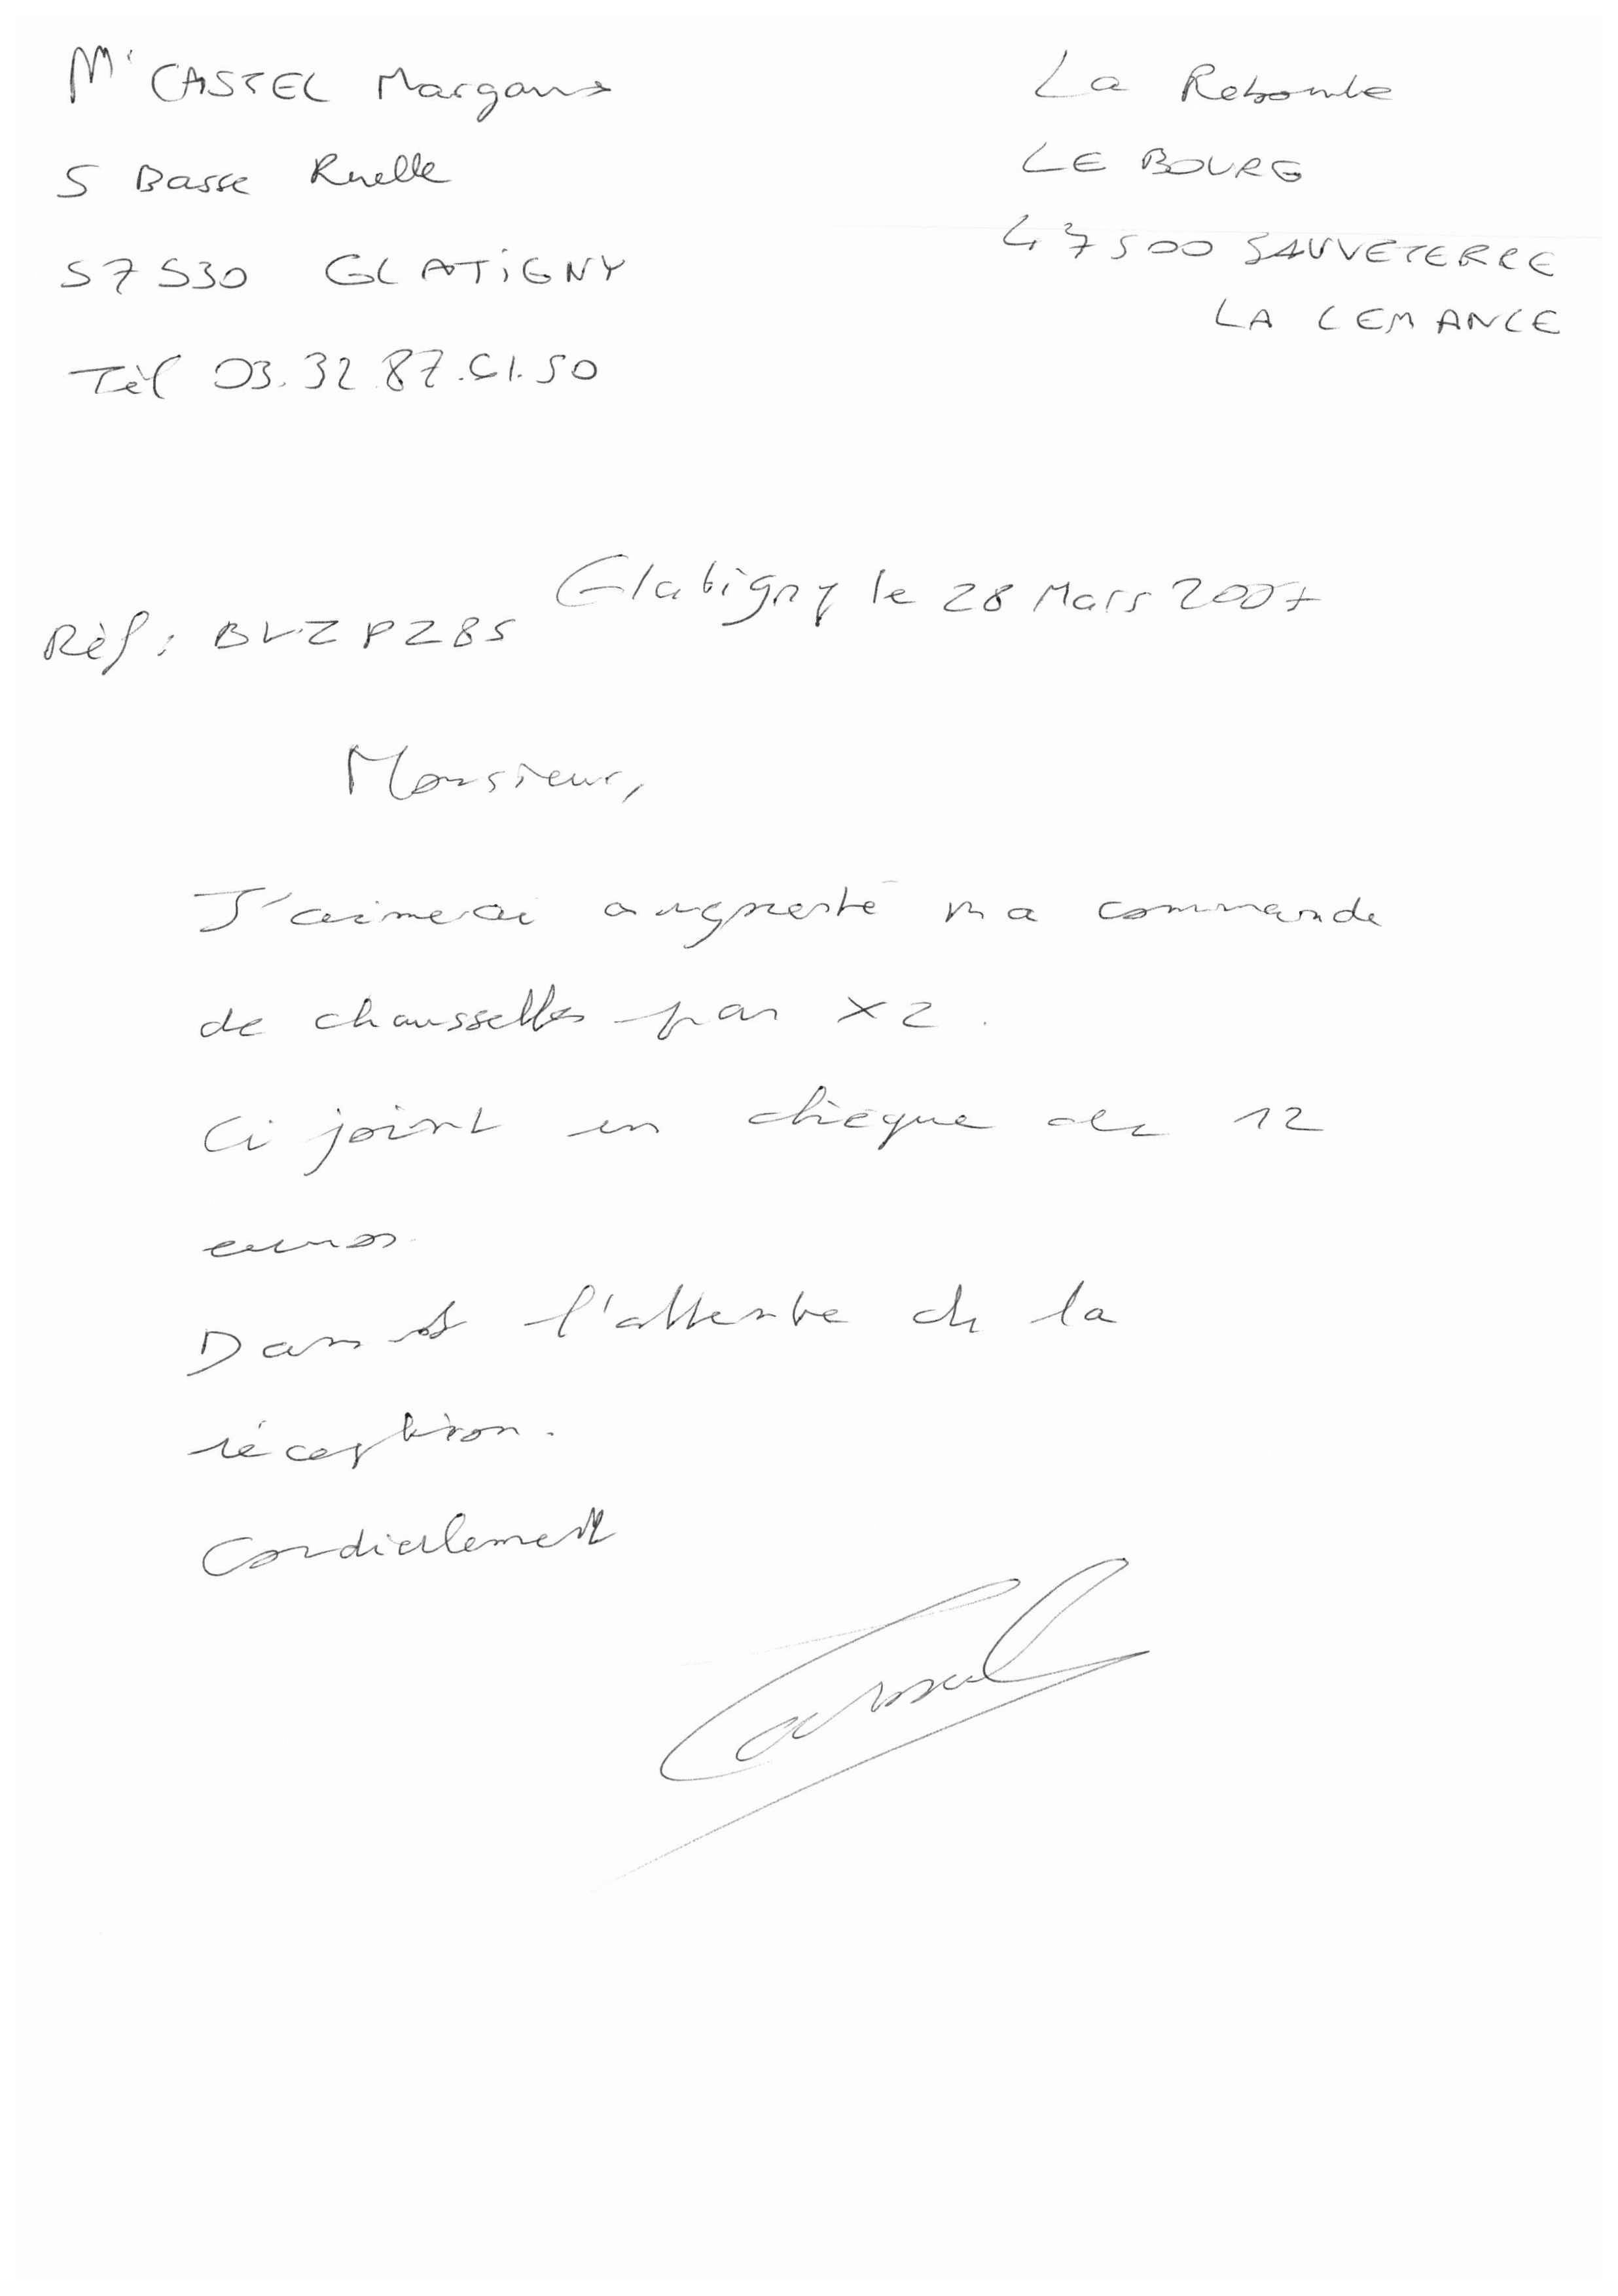 Mr CASTEL Margaux
5 Basse Ruelle
57530 GLATIGNY
Tèl 03.32.87.61.50
La Reboule
LE BOURG
47500 SAUVETERRE
LA LEMANCE
Glatigny le 28 Mars 2007
Rèf : BVZPZ85
Monsieur,
J'aimerai augmenté ma commande
de chaussettes par x2.
Ci joint un chèque de 12
euros.
Dans l'attente de la
réception.
Cordialement